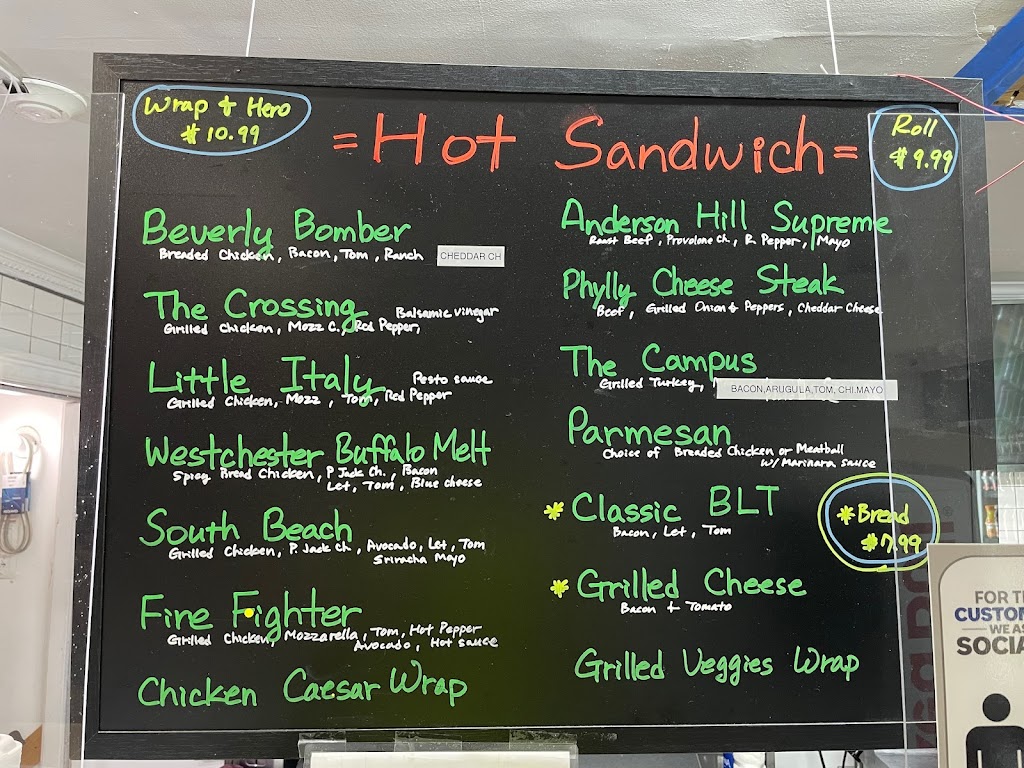 Wrap & Hero
$10.99
= Hot Sandwich =
Roll
$9.99
Beverly Bomber
Breaded Chicken, Bacon, Tom, Ranch
CHEDDAR CH
The Crossing
Balsamic vinegar
Grilled Chicken, Mozz C., Red Pepper,
Little Italy
Pesto sauce
Grilled Chicken, Mozz, Tom, Red Pepper
Westchester Buffalo Melt
Spicy Bread Chicken, P Jack Ch., Bacon
Let, Tom, Blue cheese
South Beach
Grilled Chicken, P. Jack ch, Avocado, Let, Tom
Sriracha Mayo
Fire Fighter
Grilled Chicken, Mozzarella, Tom, Hot Pepper
Avocado, Hot sauce
Chicken Caesar Wrap
Anderson Hill Supreme
Roast Beef, Provolone Ch, R. Pepper, Mayo
Phylly Cheese Steak
Beef, Grilled Onion & Peppers, Cheddar Cheese
The Campus
Grilled Turkey,
BACON,ARUGULA,TOM, CHI.MAYO
Parmesan
Choice of Breaded Chicken or Meatball
w/ Marinara sauce
* Classic BLT
Bacon, Let, Tom
* Bread
$7.99
* Grilled Cheese
Bacon + Tomato
Grilled Veggies Wrap
FOR
CUSTOM
WE
SOCIA